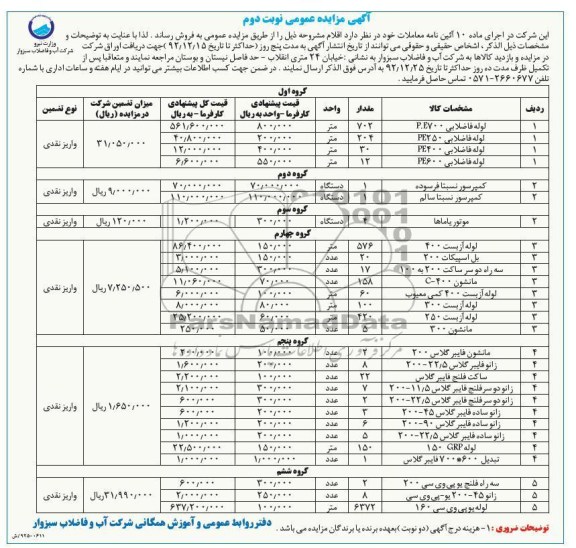 آگهی مزایده عمومی نوبت دوم
وزارت نیرو
شرکت آب و فاضلاب سبزوار
این شرکت در اجرای ماده ۱۰ آئین نامه معاملات خود در نظر دارد اقلام مشروحه ذیل را از طریق مزایده عمومی به فروش رساند . لذا با عنایت به توضیحات و
مشخصات ذیل الذکر ، اشخاص حقیقی و حقوقی می توانند از تاریخ انتشار آگهی به مدت پنج روز (حداکثر تا تاریخ ۹۲/۱۲/۱۵ )جهت دریافت اوراق شرکت
در مزایده و بازدید کالاها به شرکت آب و فاضلاب سبزوار به نشانی :خیابان ۲۴ متری انقلاب - حد فاصل نیستان و بوستان مراجعه نمایند و متعاقبا پس از
تکمیل ظرف مدت ده روز حداکثر تا تاریخ ۹۲/۱۲/۲۵ به آدرس فوق الذکر ارسال نمایند . در ضمن جهت کسب اطلاعات بیشتر می توانید در ایام هفته و ساعات اداری با شماره
تلفن ۲۶۶۰۶۷۷-۰۵۷۱ تماس حاصل فرمایید .
گروه اول
ردیف مشخصات کالا مقدار واحد قیمت پیشنهادی کارفرما -واحد به ریال قیمت کل پیشنهادی کارفرما - به ریال میزان تضمین شرکت در مزایده (ریال) نوع تضمین
۱ لوله فاضلابی P.E۷۰۰ ۷۰۲ متر ۸۰۰/۰۰۰ ۵۶۱/۶۰۰/۰۰۰ ۳۱/۰۵۰/۰۰۰ واریز نقدی
۱ لوله فاضلابی PE۲۵۰ ۲۰۴ متر ۲۰۰/۰۰۰ ۴۰/۸۰۰/۰۰۰
۱ لوله فاضلابی PE۴۰۰ ۳۰ متر ۴۰۰/۰۰۰ ۱۲/۰۰۰/۰۰۰
۱ لوله فاضلابی PE۶۰۰ ۱۲ متر ۵۵۰/۰۰۰ ۶/۶۰۰/۰۰۰
گروه دوم
۲ کمپرسور نسبتا فرسوده ۱ دستگاه ۷۰/۰۰۰/۰۰۰ ۷۰/۰۰۰/۰۰۰ ۹/۰۰۰/۰۰۰ ریال واریز نقدی
۲ کمپرسور نسبتا سالم ۱ دستگاه ۱۱۰/۰۰۰/۰۰۰ ۱۱۰/۰۰۰/۰۰۰
گروه سوم
۲ موتور یاماها ۴ دستگاه ۳۰۰/۰۰۰ ۱/۲۰۰/۰۰۰ ۱۲۰/۰۰۰ ریال واریز نقدی
گروه چهارم
۳ لوله آزبست ۴۰۰ ۵۷۶ متر ۱۵۰/۰۰۰ ۸۶/۴۰۰/۰۰۰ ۷/۲۵۰/۵۰۰ ریال واریز نقدی
۳ بل اسپیکات ۲۰۰ ۲۰ عدد ۱۵۰/۰۰۰ ۳/۰۰۰/۰۰۰
۳ سه راه دو سر ساکت ۲۰۰ به ۱۰۰ ۱۷ عدد ۳۰۰/۰۰۰ ۵/۱۰۰/۰۰۰
۳ مانشون C-۴۰۰ ۱۵۸ عدد ۷۰/۰۰۰ ۱۱/۰۶۰/۰۰۰
۳ لوله آزبست ۴۰۰ کمی معیوب ۶۰ متر ۱۰۰/۰۰۰ ۶/۰۰۰/۰۰۰
۳ لوله آزبست ۳۰۰ ۱۰۰ متر ۸۰/۰۰۰ ۸/۰۰۰/۰۰۰
۳ لوله آزبست ۲۵۰ ۴۲۰ متر ۶۰/۰۰۰ ۲۵/۲۰۰/۰۰۰
۳ مانشون ۳۰۰ ۵ عدد ۵۰/۰۰۰ ۲۵۰/۰۰۰
گروه پنجم
۴ مانشون فایبر گلاس ۲۰۰ ۲ عدد ۱۰۰/۰۰۰ ۲۰۰/۰۰۰ ۱/۶۵۰/۰۰۰ ریال واریز نقدی
۴ زانو فایبر گلاس ۲۲/۵-۲۰۰ ۸ عدد ۲۰۰/۰۰۰ ۱/۶۰۰/۰۰۰
۴ ساکت فلنج فایبر گلاس ۲۲ عدد ۱۰۰/۰۰۰ ۲/۲۰۰/۰۰۰
۴ زانو دو سر فلنج فایبر گلاس ۱۱/۵-۲۰۰ ۷ عدد ۳۰۰/۰۰۰ ۲/۱۰۰/۰۰۰
۴ زانو دو سر فلنج فایبر گلاس ۲۲/۵-۲۰۰ ۲ عدد ۳۰۰/۰۰۰ ۶۰۰/۰۰۰
۴ زانو ساده فایبر گلاس ۴۵-۲۰۰ ۳ عدد ۲۰۰/۰۰۰ ۶۰۰/۰۰۰
۴ زانو ساده فایبر گلاس ۹۰-۲۰۰ ۶ عدد ۲۰۰/۰۰۰ ۱/۲۰۰/۰۰۰
۴ زانو ساده فایبر گلاس ۲۲/۵-۲۰۰ ۵ عدد ۲۰۰/۰۰۰ ۱/۰۰۰/۰۰۰
۴ لوله GRP ۱۵۰ ۱۵۰ متر ۱۵۰/۰۰۰ ۲۲/۵۰۰/۰۰۰
۴ تبدیل ۶۰۰*۷۰۰ فایبر گلاس ۱ عدد ۱/۰۰۰/۰۰۰ ۱/۰۰۰/۰۰۰
گروه ششم
۵ سه راه فلنج یو پی وی سی ۲۰۰ ۲ عدد ۳۰۰/۰۰۰ ۶۰۰/۰۰۰ ۳۱/۹۹۰/۰۰۰ ریال واریز نقدی
۵ زانو ۴۵-۲۰۰ یو-پی-وی سی ۸ عدد ۲۵۰/۰۰۰ ۲/۰۰۰/۰۰۰
۵ لوله یو پی وی سی ۱۶۰ ۶۳۷۲ متر ۱۰۰/۰۰۰ ۶۳۷/۲۰۰/۰۰۰
توضیحات ضروری : ۱- هزینه درج آگهی (دو نوبت )بعهده برنده یا برندگان مزایده می باشد .
دفتر روابط عمومی و آموزش همگانی شرکت آب و فاضلاب سبزوار
ParsNamadData